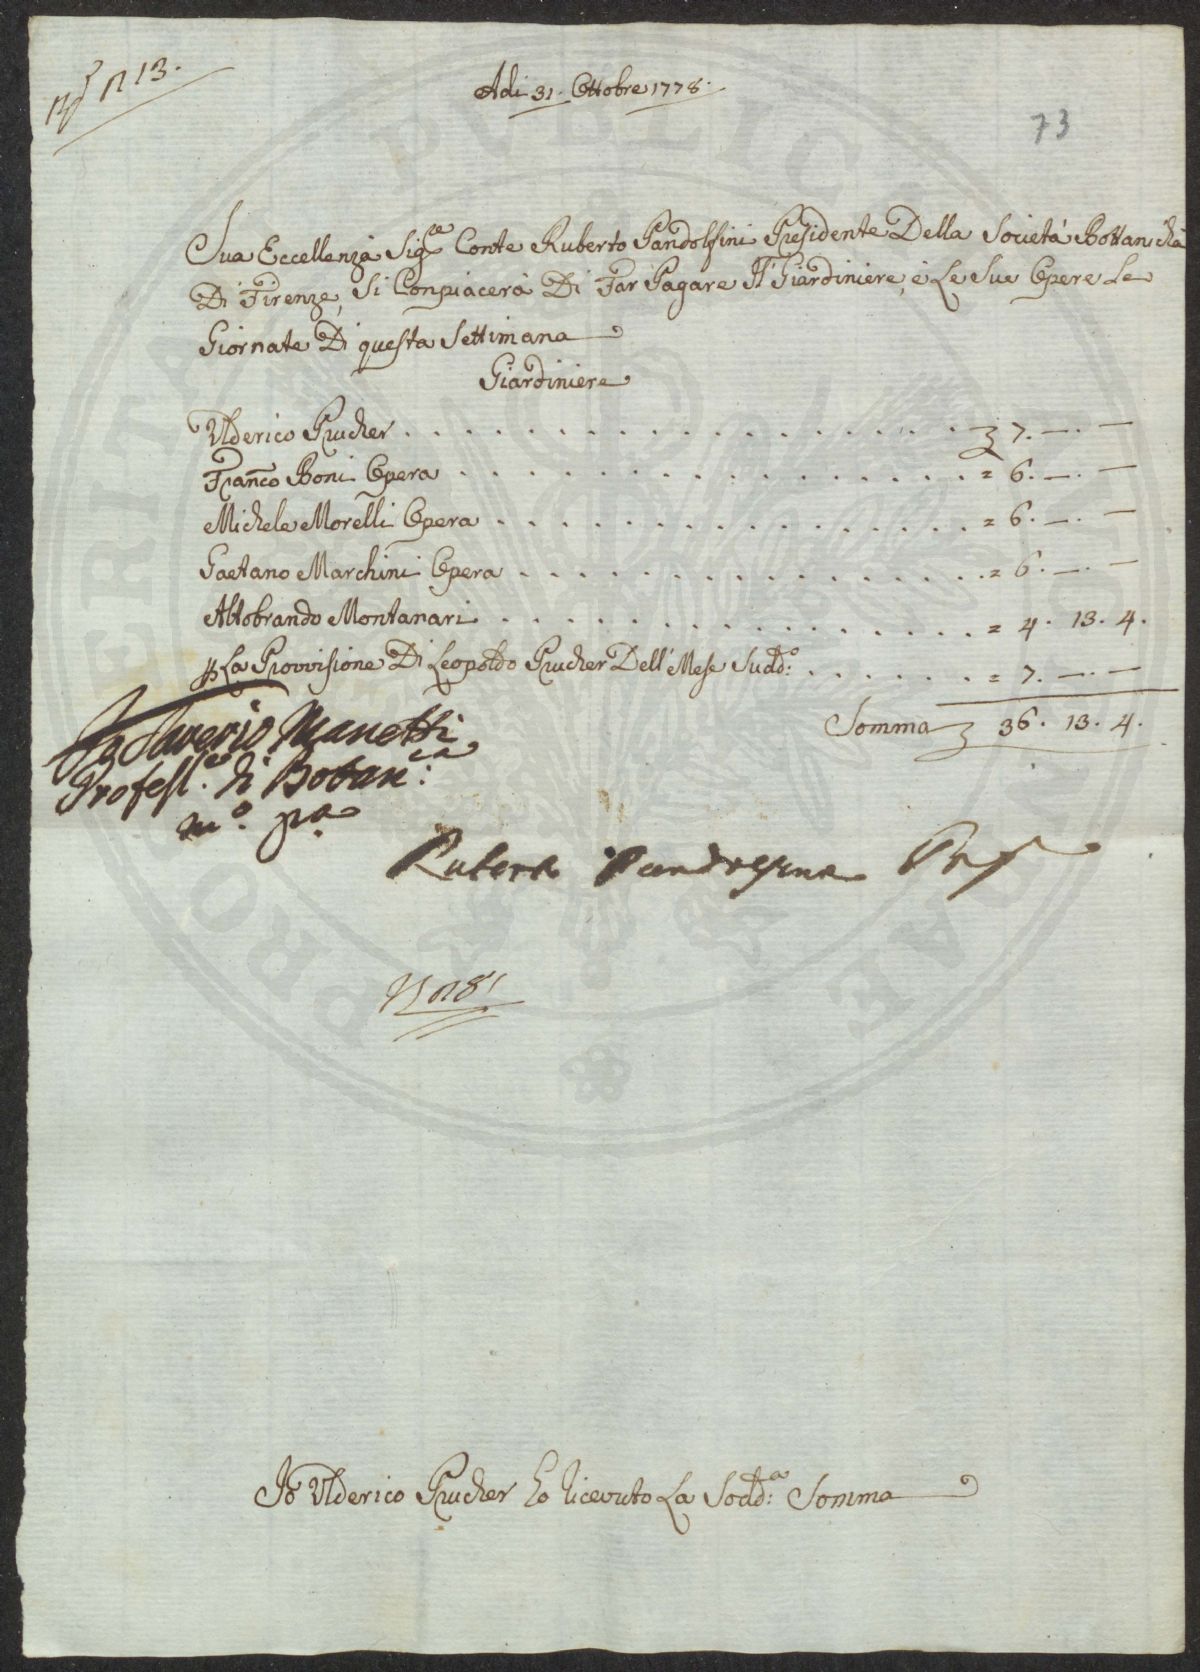 n 13.
Adi 31. Ottobre 1778.
73
Sua Eccellenza Sig.re Conte Ruberto Pandolfini Presidente Della Societá Bottanicha
Di Firenze, Si Conpiacerà Di Far Pagare Il Giardiniere, é Le Sue Opere Le
Giornate Di questa Settimana
Giardiniere
Ulderico Prucher . . . . . . . . . . . . . . . . . . 7. —. —
Franco Boni Opera . . . . . . . . . . . . . . . . = 6. —. —
Michele Morelli Opera . . . . . . . . . . . . . . . = 6. —. —
Gaetano Marchini Opera . . . . . . . . . . . . . . = 6. —. —
Altobrando Montanari . . . . . . . . . . . . . . . = 4. 13. 4.
p La Provvisione Di Leopoldo Prucher Dell' Mese Sudd:o . . . . . . . = 7. —. —
Somma 36. 13. 4.
Io Saverio Manetti
Profess.e di Botan:ca
m.o pa
Ruberto Pandolfini Pres
N 81
Io Ulderico Prucher ho ricevuto La Sodd:a Somma
PROSPERITATI PUBLICAE AUGENDAE